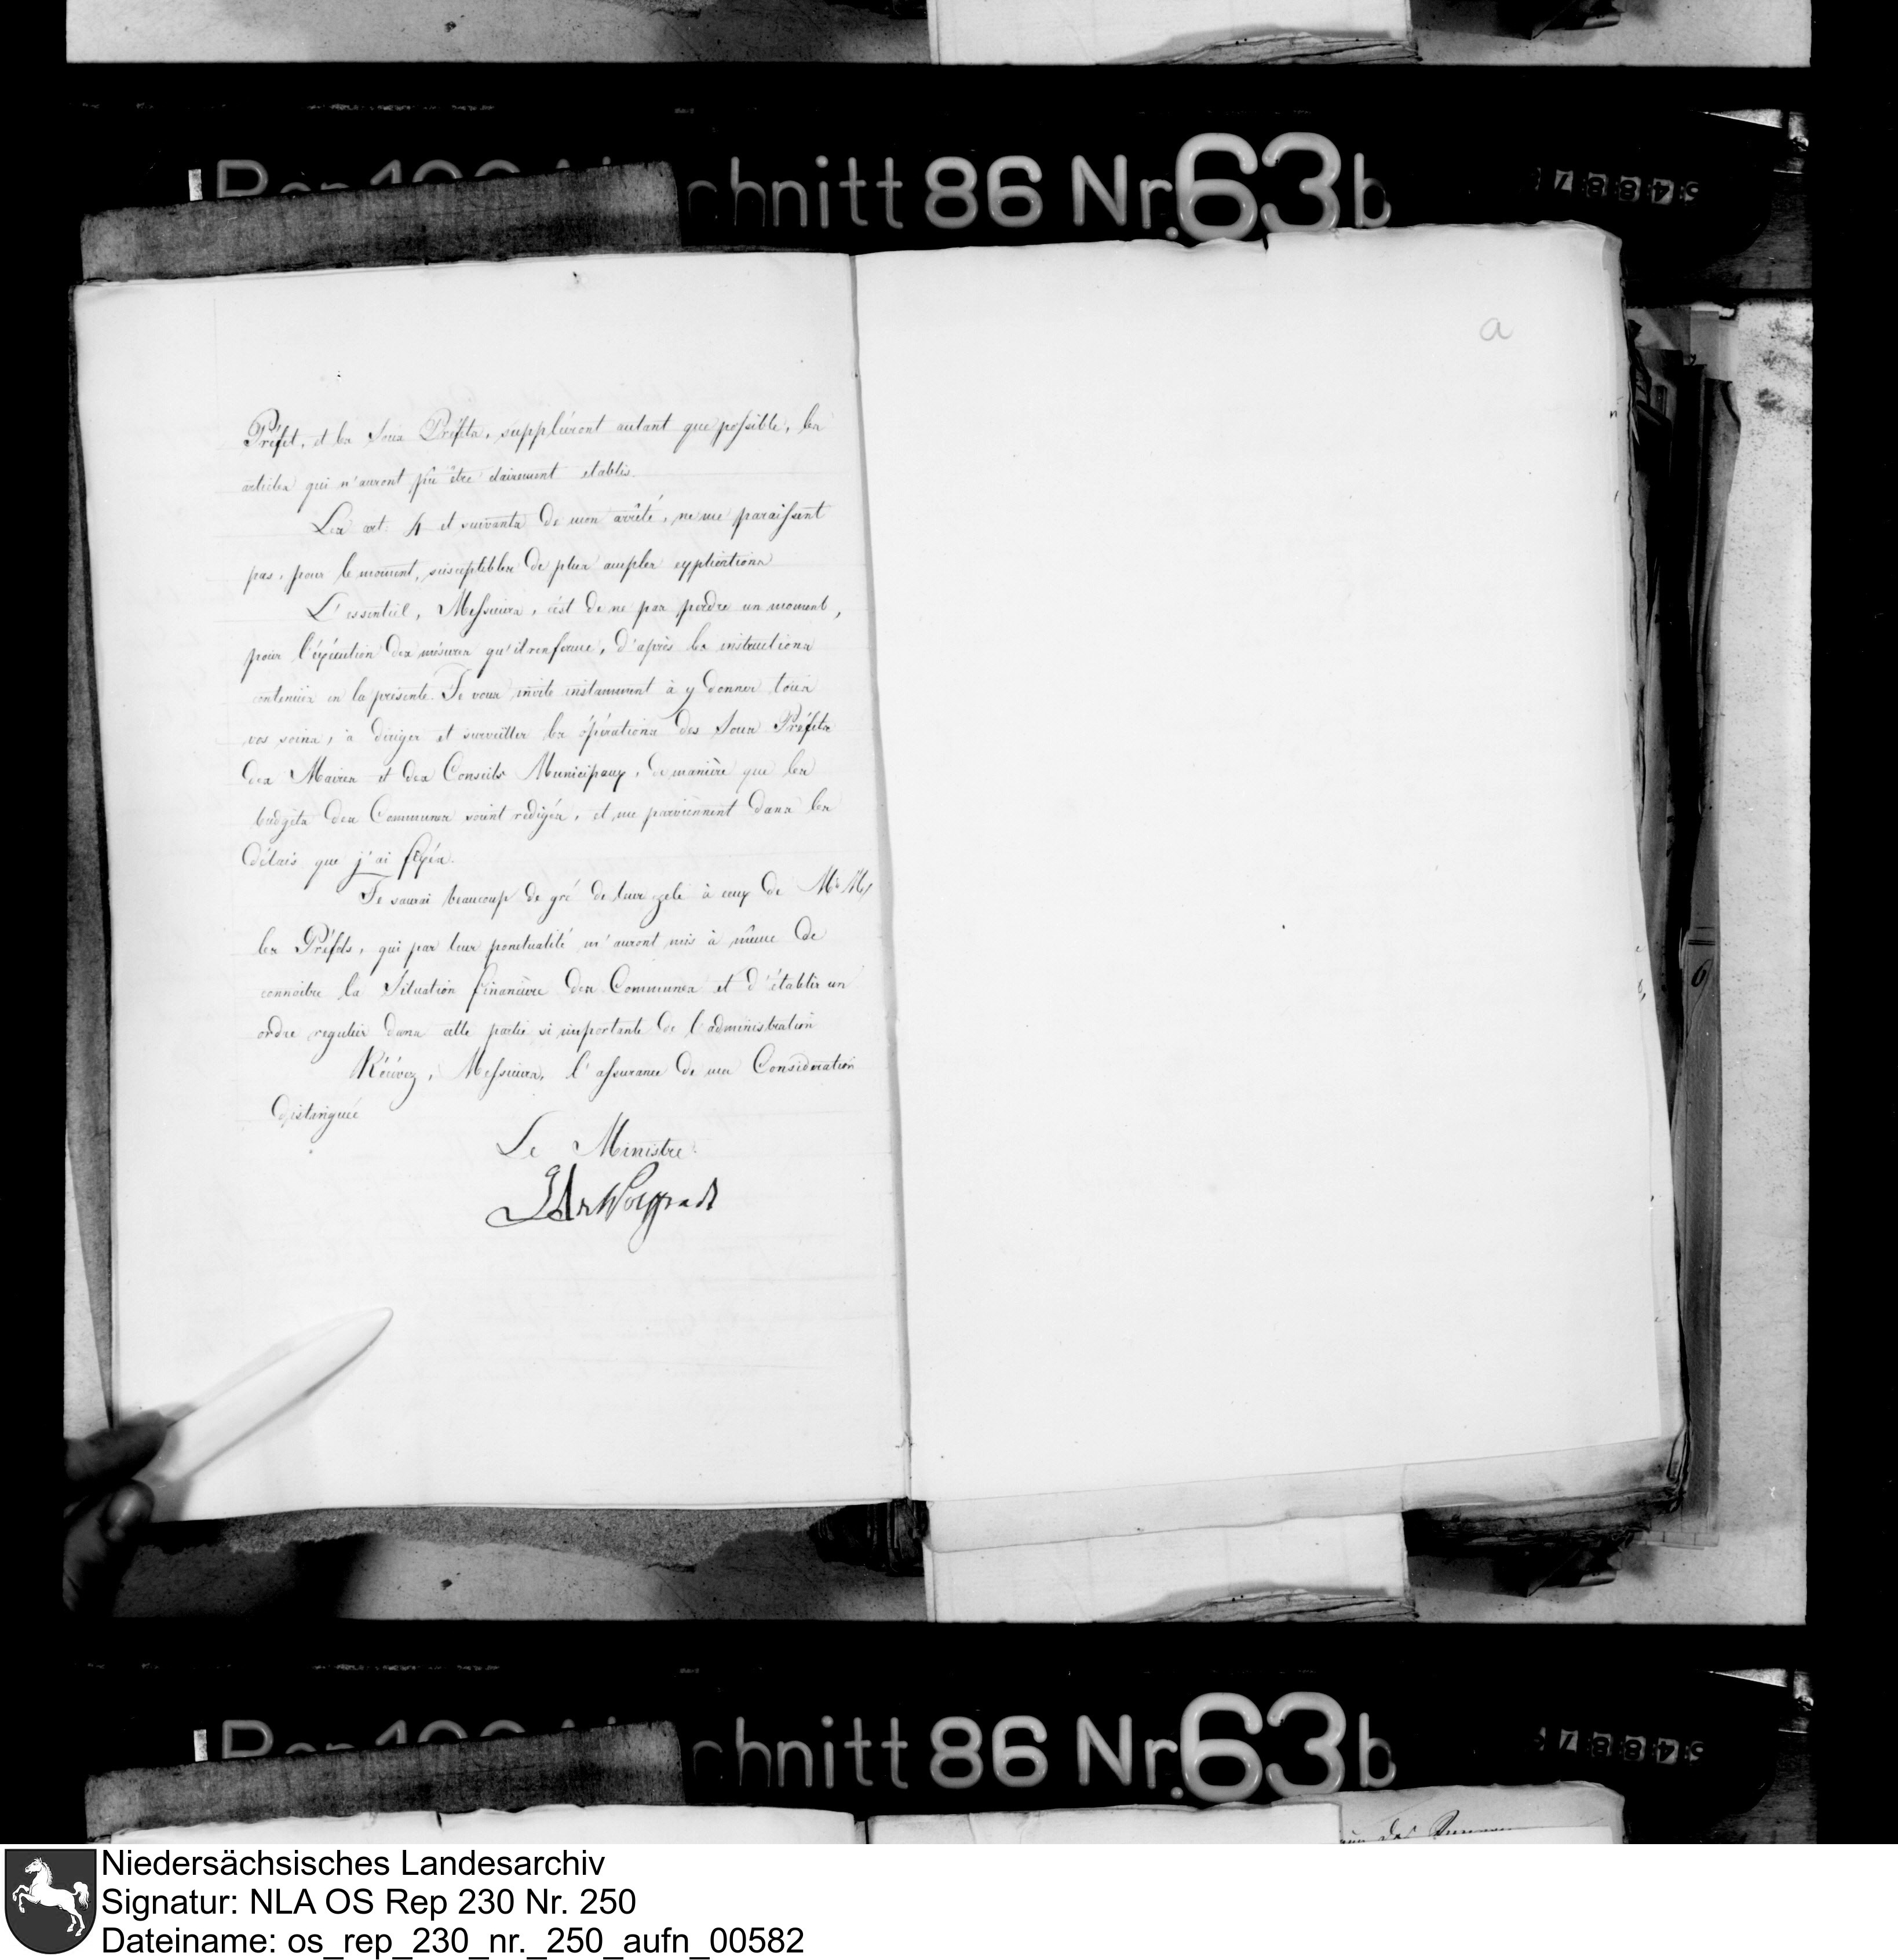 chnitt 86 Nr. 63 b
a
Préfet, et les Sous Préfets, suppléeront autant que possible, les
articles qui n'auront pû être clairement etablis.
Les art. 4 et suivants de mon arrêté, ne me paraissent
pas, pour le moment, susceptibles de plus amples explications
L'essentiel, Messieurs, c'est de ne pas perdre un moment,
pour l'éxécution des mésures qu'il renferme, d'après les instructions
contenues en la présente. Je vous invite instamment à y donner tous
vos soins, à diriger et surveiller les opérations des Sous Préfets
des Maires et des Conseils Municipaux, de manière que les
budgets des Communes soient rédigés, et me parviennent dans les
délais que j'ai fixés.
Je saurai beaucoup de gré de leur zele à ceux de Mr Mrs
les Préfets, qui par leur ponctualité m'auront mis à même de
connoitre la Situation financière des Communes et d'établir un
ordre regulier dans cette partie si importante de l'administration
Récévez, Messieurs, l'assurance de ma Consideration
distinguée
Le Ministre.
chnitt 86 Nr. 63 b
Niedersächsisches Landesarchiv
Signatur: NLA OS Rep 230 Nr. 250
Dateiname: os_rep_230_nr._250_aufn_00582